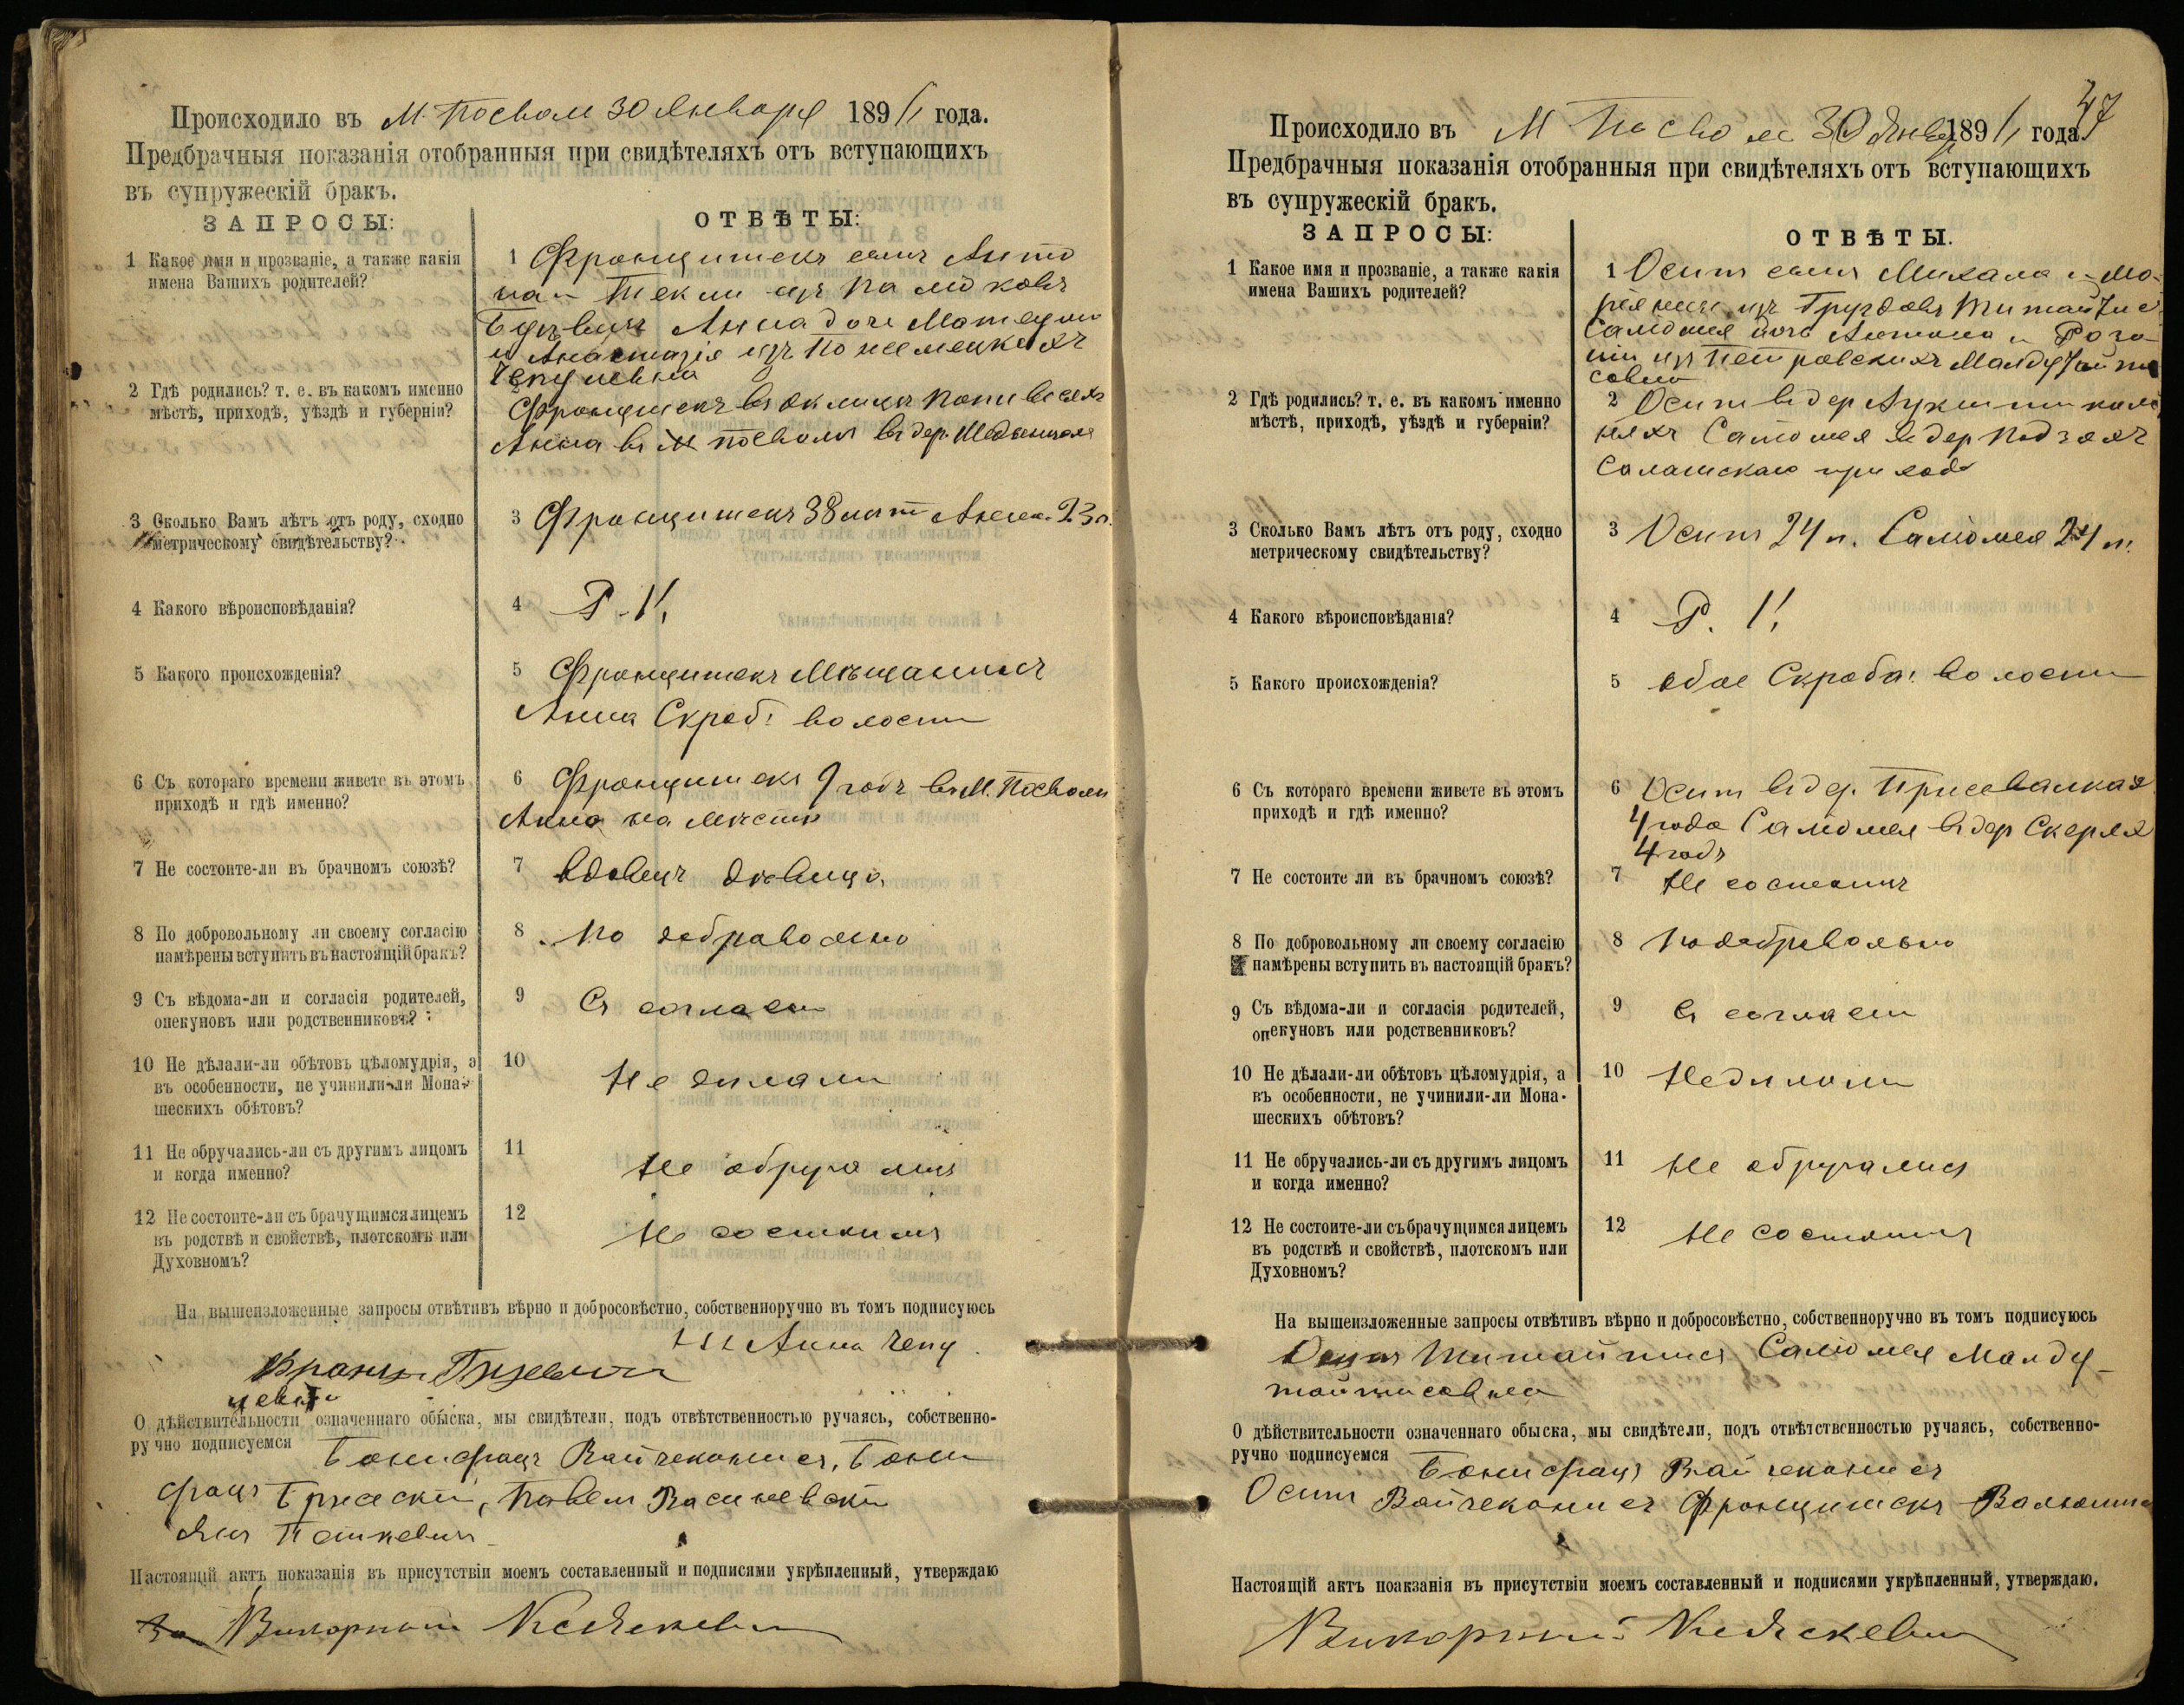 Происходило въ М. Посволь 30 Января 1891 года.
Предбрачныя показанія отобранныя при свидѣтеляхъ отъ вступающихъ
въ супружескій бракъ.
ЗАПРОСЫ:
ОТВѢТЫ:
1 Какое имя и прозваніе, а также какія
имена Вашихъ родителей?
1 Францишекъ сынъ Анто
на и Текли изъ
Анна дочь
и Анастазія изъ
2 Гдѣ родились? т. е. въ какомъ именно
мѣстѣ, приходѣ, уѣздѣ и губерніи?
Францишекъ въ
Анна въ М Посволь въ дер.
3 Сколько Вамъ лѣтъ отъ роду, сходно
метрическому свидѣтельству?
3 Францишекъ 38 лѣт Анна 23 л.
4 Какого вѣроисповѣданія?
4 Р. К.
5 Какого происхожденія?
5 Францишекъ Мѣщанинъ
Анна Скроб. волости
6 Съ котораго времени живете въ этомъ
приходѣ и гдѣ именно?
6 Францишекъ 9 годъ въ М. Посволи
Анна на мѣсти
7 Не состоите-ли въ брачномъ союзѣ?
7 вдовецъ дѣвица
8 По добровольному ли своему согласію
намѣрены вступить въ настоящій бракъ?
8 По добравольно
9 Съ вѣдома-ли и согласія родителей,
опекуновъ или родственниковъ?
9 Съ согласи
10 Не дѣлали-ли обѣтовъ цѣломудрія, а
въ особенности, не учинили-ли Мона-
шескихъ обѣтовъ?
10 Не дилали
11 Не обручались-ли съ другимъ лицомъ
и когда именно?
11 Не обручалися
12 Не состоите-ли съ брачущимся лицемъ
въ родствѣ и свойствѣ, плотскомъ или
Духовномъ?
12 Не состоимъ
На вышеизложенные запросы отвѣтивъ вѣрно и добросовѣстно, собственноручно въ томъ подписуюсь
Анна Чепу
О дѣйствительности означеннаго обыска, мы свидѣтели, подъ отвѣтственностью ручаясь, собственно-
ручно подписуемся Бонифацъ Вайчеконисъ, Бони
фацъ Павелъ Василевски
Янъ Петкевичъ
Настоящій актъ показанія въ присутствіи моемъ составленный и подписями укрѣпленный, утверждаю
Викарный
47
Происходило въ М Посволь 30 Янв 1891 года
Предбрачныя показанія отобранныя при свидѣтеляхъ отъ вступающихъ
въ супружескій бракъ.
ЗАПРОСЫ:
ОТВѢТЫ.
1 Какое имя и прозваніе, а также какія
имена Вашихъ родителей?
1 Осипъ сынъ Михала и Ма-
изъ
Саломея дочь Антона и Роза-
ліи изъ Петровскихъ
2 Гдѣ родились? т. е. въ какомъ именно
мѣстѣ, приходѣ, уѣздѣ и губерніи?
2 Осипъ въ дер
Саломея в дер
прихода
3 Сколько Вамъ лѣтъ отъ роду, сходно
метрическому свидѣтельству?
3 Осипъ 24 л. Саломея 24 л.
4 Какого вѣроисповѣданія?
4 Р. К.
5 Какого происхожденія?
5 обое Скроба. волости
6 Съ котораго времени живете въ этомъ
приходѣ и гдѣ именно?
6 Осип в дер.
4 года Саломея в дер
4 годъ
7 Не состоите ли въ брачномъ союзѣ?
7 Не состоимъ
8 По добровольному ли своему согласію
намѣрены вступить въ настоящій бракъ?
8 По добравольно
9 Съ вѣдома-ли и согласія родителей,
опекуновъ или родственниковъ?
9 Съ согласи
10 Не дѣлали-ли обѣтовъ цѣломудрія, а
въ особенности, не учинили-ли Мона-
шескихъ обѣтовъ?
10 Не дилали
11 Не обручались-ли съ другимъ лицомъ
и когда именно?
11 Не обручалися
12 Не состоите-ли съ брачущимся лицемъ
въ родствѣ и свойствѣ, плотскомъ или
Духовномъ?
12 Не состоимъ
На вышеизложенные запросы отвѣтивъ вѣрно и добросовѣстно, собственноручно въ томъ подписуюсь
Осипъ Саломея Малду-
О дѣйствительности означеннаго обыска, мы свидѣтели, подъ отвѣтственностью ручаясь, собственно-
ручно подписуемся Бонифацъ Вайчеконисъ
Осипъ Вайчеконисъ Францишекъ
Настоящій актъ поакзанія въ присутствіи моемъ составленный и подписями укрѣпленный, утверждаю.
Викарный